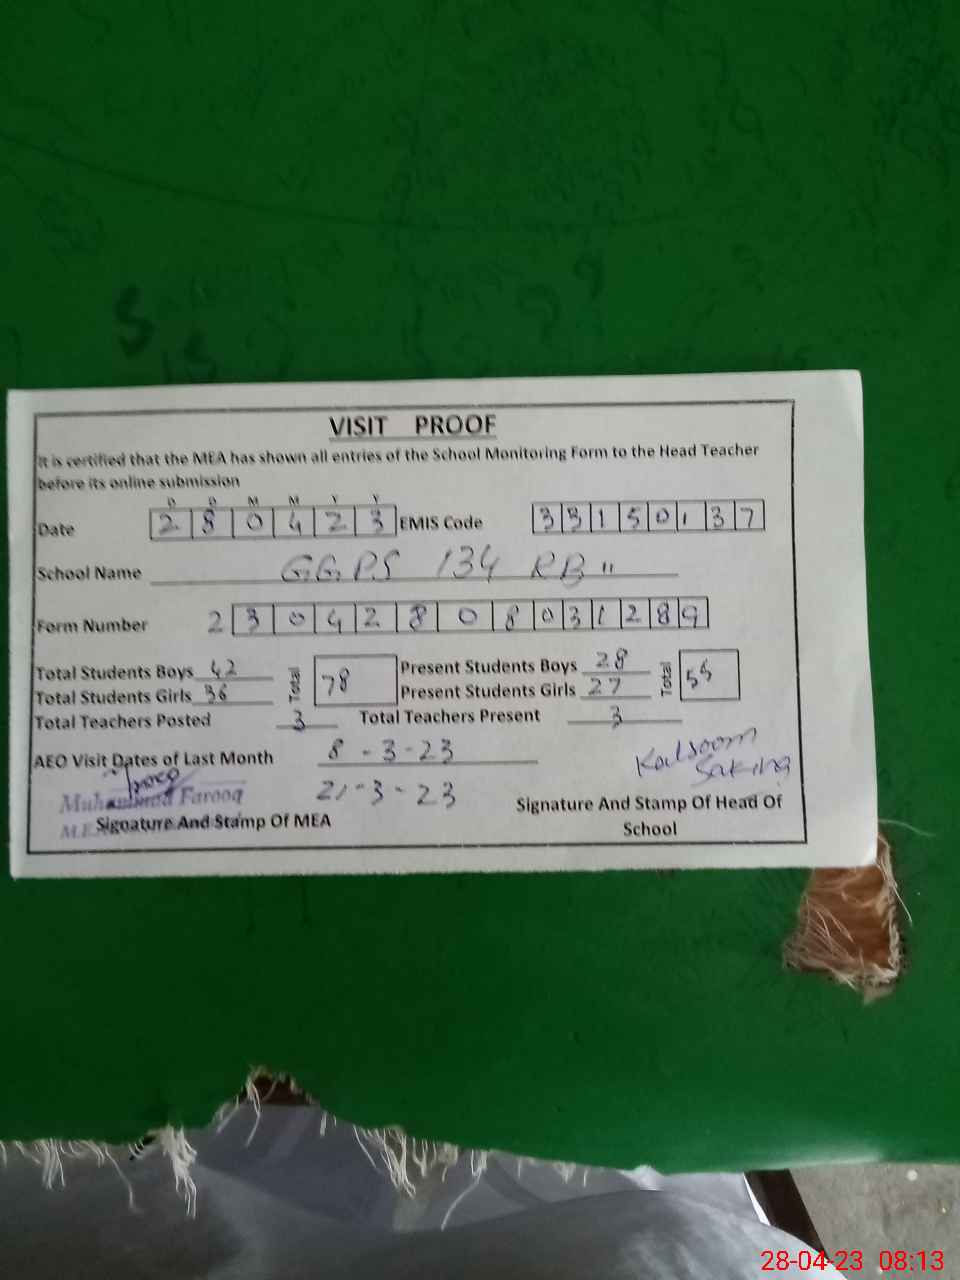 VISIT PROOF
It is certified that the MEA has shown all entries of the School Monitoring Form to the Head Teacher
before its online submission
D D M M Y Y
Date 2 8 0 4 2 3 EMIS Code 3 3 1 5 0 1 3 7
School Name GGPS 134 RB "
Form Number 2 3 0 4 2 8 0 8 0 3 1 2 8 9
Total Students Boys 42 Total 78 Present Students Boys 28 Total 55
Total Students Girls 36 Present Students Girls 27
Total Teachers Posted 3 Total Teachers Present 3
AEO Visit Dates of Last Month 8-3-23
21-3-23
Kalsoom
Muhammad Farooq
Signature And Stamp Of MEA
Signature And Stamp Of Head Of
School
28-04-23 08:13